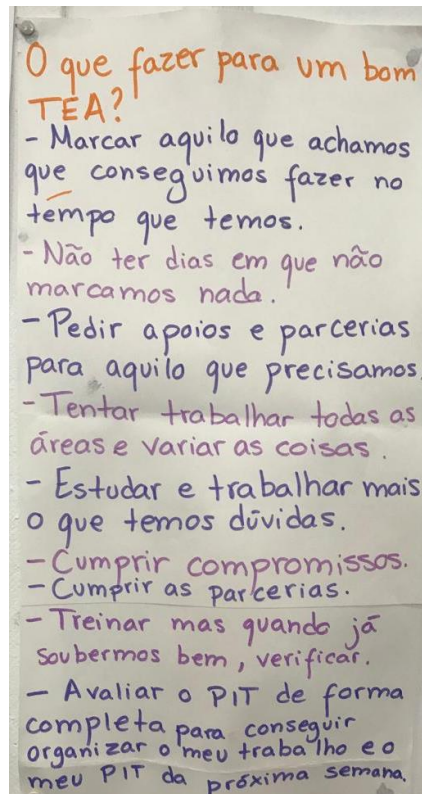 O que fazer para um bom
TEA?
- Marcar aquilo que achamos
que conseguimos fazer no
tempo que temos.
- Não ter dias em que não
marcamos nada.
- Pedir apoios e parcerias
para aquilo que precisamos.
- Tentar trabalhar todas as
áreas e variar as coisas.
- Estudar e trabalhar mais
o que temos dúvidas.
- Cumprir compromissos.
- Cumprir as parcerias.
- Treinar mas quando já
soubermos bem, verificar.
- Avaliar o PIT de forma
completa para conseguir
organizar o meu trabalho e o
meu PIT da próxima semana.